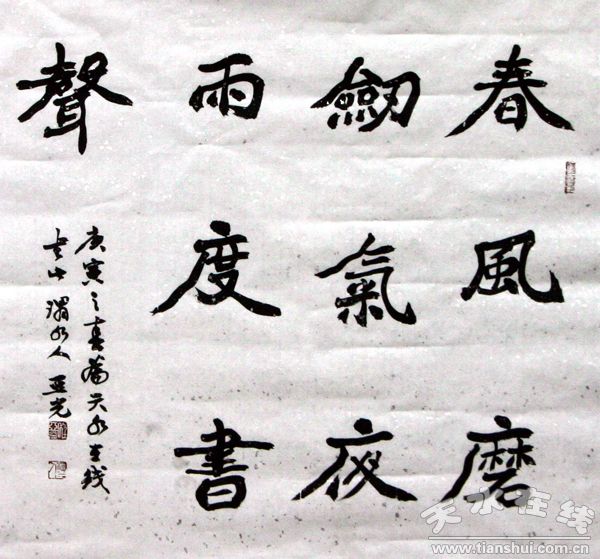 春風磨
劒氣夜
雨度書
聲
庚寅之春為天水在线
渭水人 亞光
天水在线
www.tianshui.com.cn